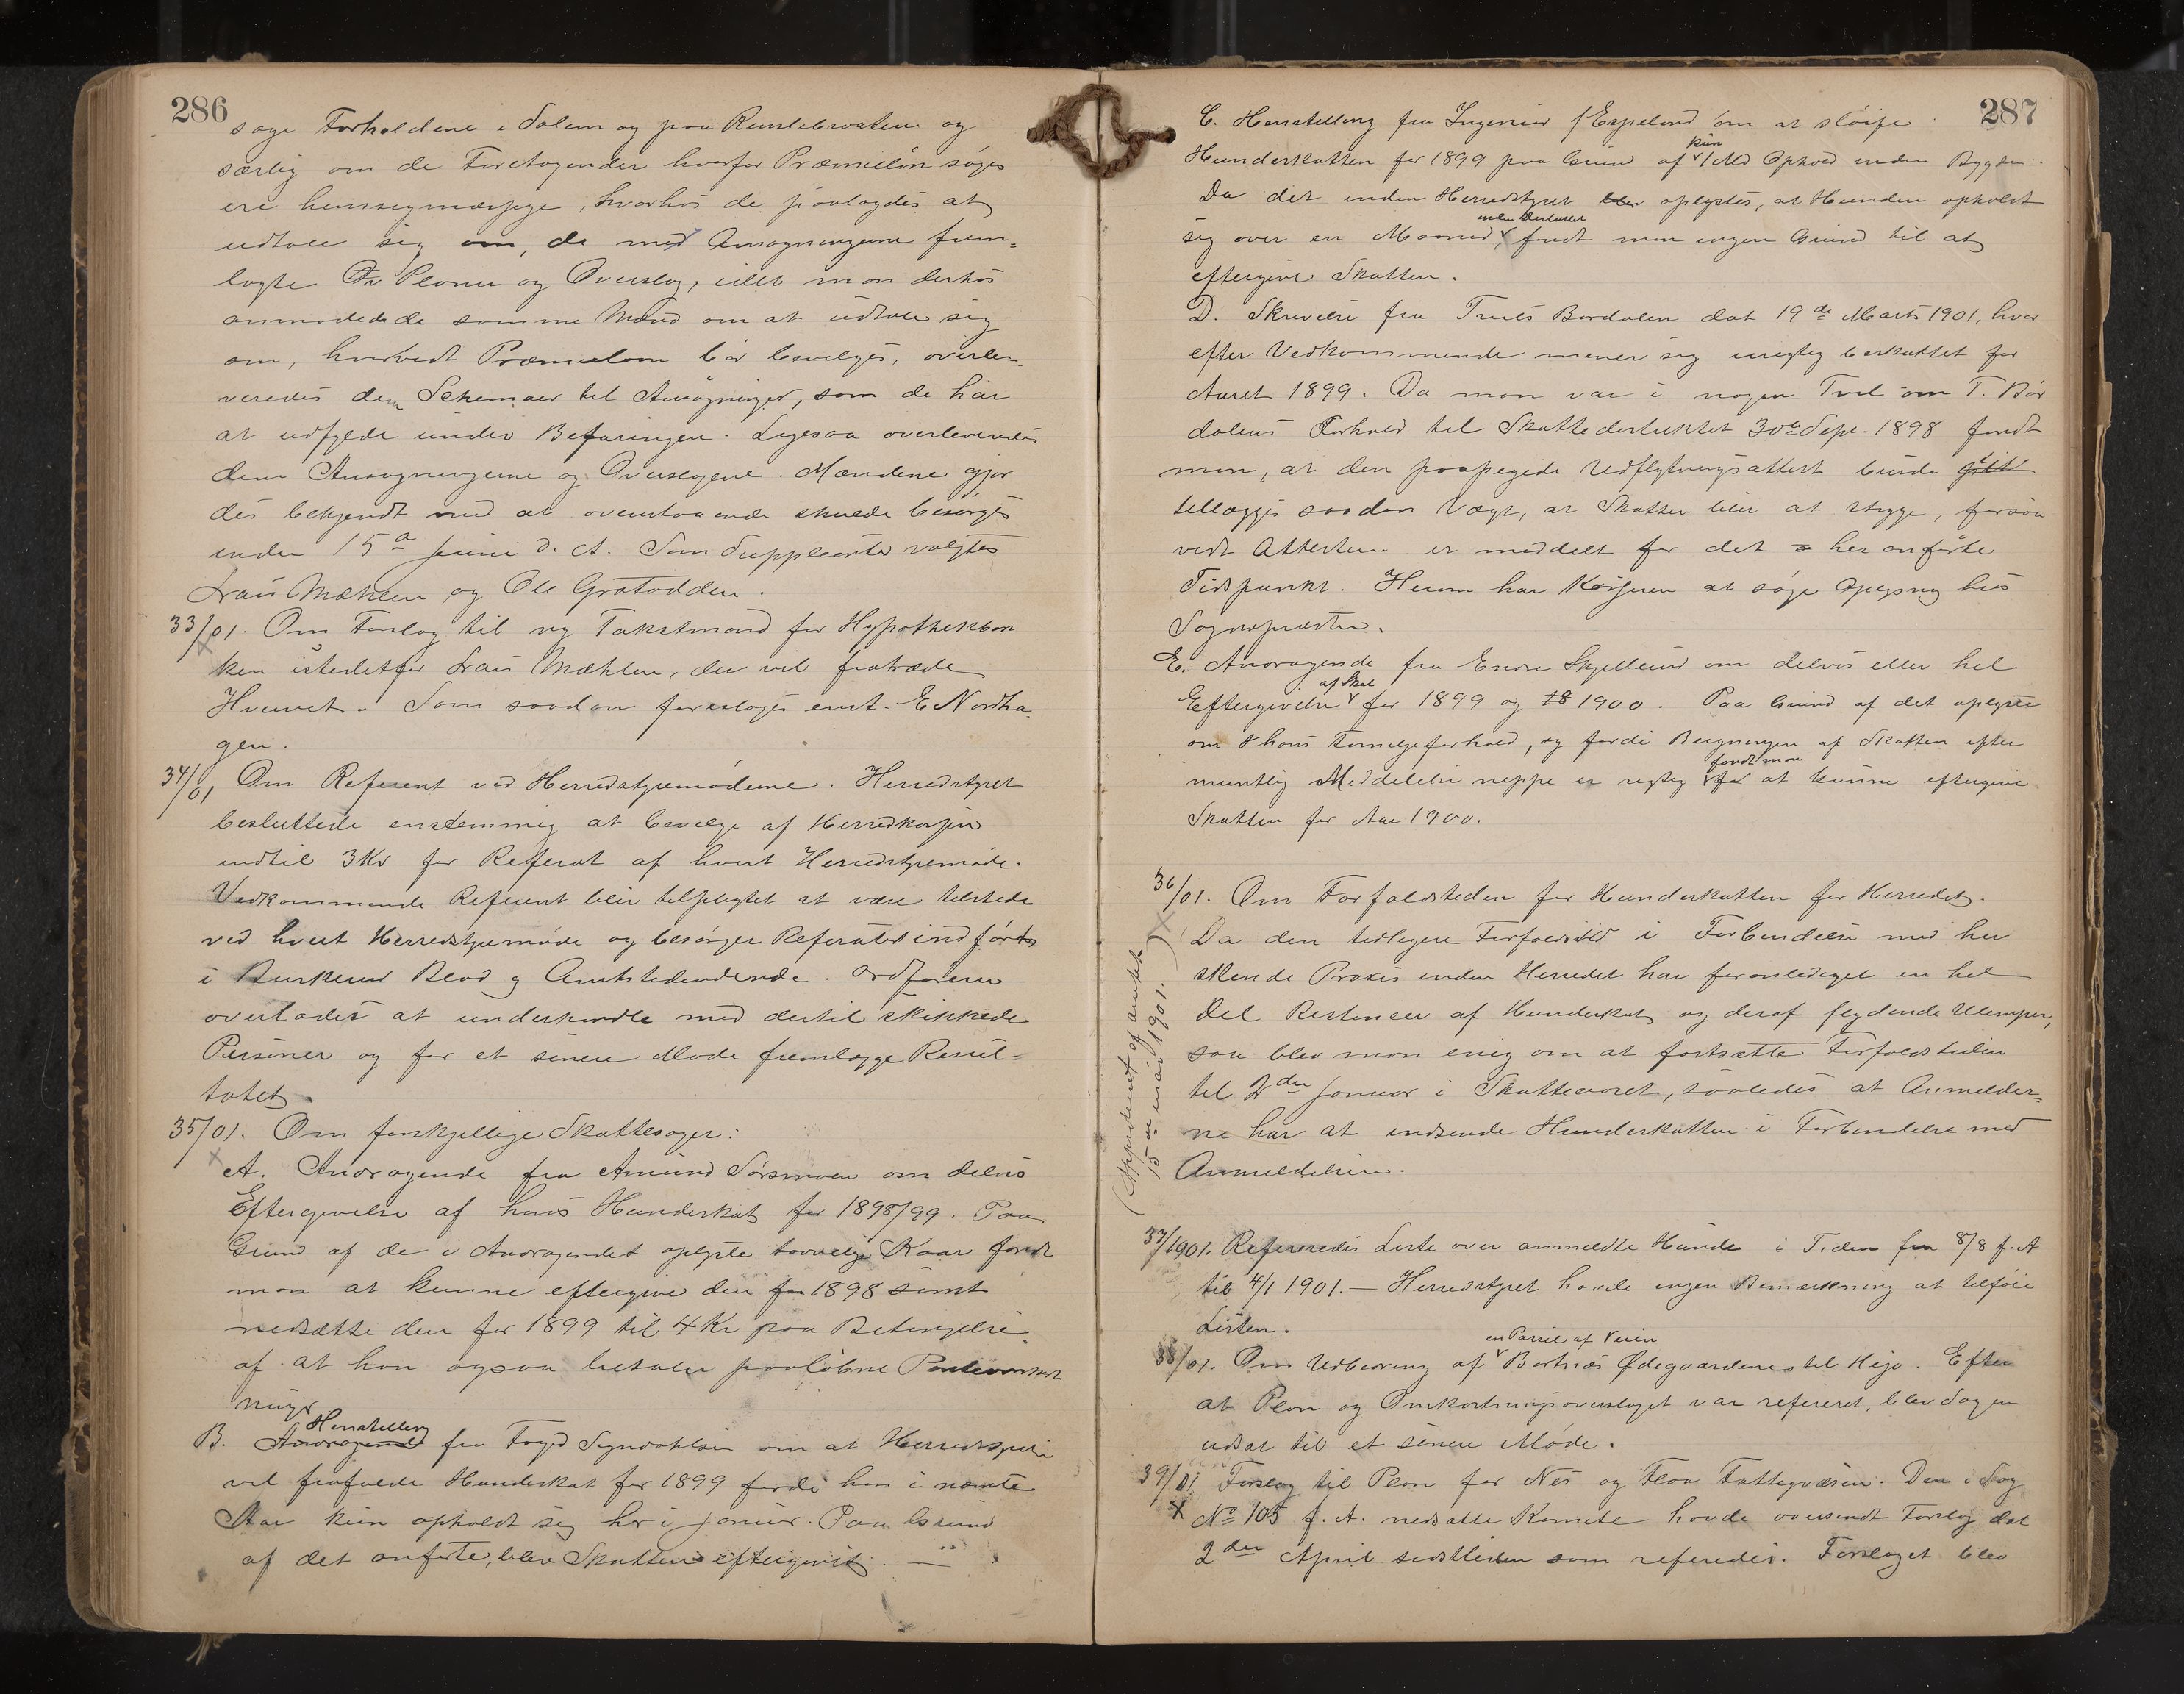 286
søge Forholdene i Dalem og paa Rensleberaaten og
særlig om de Foretagender hvorfor Præmielån søges
ere hensegmæssige, hvorhos de paalagdes at
udtale sig om, de med Ansøgningerne frem-
lagte Planer og Overslag, idet man derhos
anmodede de samme Mænd om at udtale sig
om, hvorvidt Præmielaan bør bevilges, overle-
veredes dem Schemaer til Ansøgninger, som de har
at udfylde under Befaringen. Ligesaa overleveredes
dem Ansøgningerne og Overslagene. Mændene gjor
des bekjendt med at ovenstaaende skulde besørges
inden 15de Juni d. A. Som Suppleanter valgtes
Lars Mæhlen og Ole Grotodden.
33/01. Om Forslag til ny Takstmand for Hypothekban
ken istedetfor Lars Mæhlen, der vil fratræde
Hvervet. Som saadan foresloges enst. E Nordha-
gen.
34/01 Om Referent ved Herredstyremøderne. Herredstyret
besluttede enstemmig at bevilge af Herredkassen
indtil 3 Kr for Referat af hvert Herredstyremøde.
Vedkommende Referent blir tilpligtet at være tilstede
ved hvert Herredstyremøde og besørger Referatet indført
i Buskerud Blad og Amtstidendende. Ordføreren
overlades at underhandle med dertil skikkede
Personer og for et senere Møde fremlægge Resul-
tatet.
35/01. Om forskjellige Skattesager:
A. Andragende fra Amund Sørsmoen om delvis
Eftergivelse af hans Hundeskat for 1898/99. Paa
Grund af de i Andragendet oplyste tarvelige Kaar fandt
man at kunne eftergive den for 1898 samt
nedsætte den for 1899 til 4 Kr paa Betingelse
af at han ogsaa betaler paaløbne
ninger
Henstilling
B. Andragende fra Foged Syndahlsen om at Herredstyret
vil frafalde Hundeskat for 1899 fordi han i nævnte
Aar kun opholdt sig her i Januar. Paa Grund
af det anførte, blev Skatten eftergivet. —
287
C. Henstilling fra Ingeniør Espeland om at sløife
kun
Hundeskatten for 1899 paa Grund af 1 Md Ophold inden Bygden.
Da det inden Herredstyret blev oplystes, at Hunden opholdt
sig over en Maaned, fandt man ingen Grund til at
eftergive Skatten.
D. Skrivelse fra Truls Bardalen dat 19de Marts 1901, hvor
efter Vedkommende mener sig urigtig beskattet for
Aaret 1899. Da man var i nogen Tvil om T. Bar
dalens Forhold til Skattedistriktet 30te Sept. 1898 fandt
man, at den paapegede Udflytningsattest burde
tillægges saadan Vægt, at Skatten blir at stryge, forsaa
vidt Attesten er meddelt for det her anførte
Tidspunkt. Herom har Kasseren at søge Oplysning hos
Sognepræsten.
E. Andragende fra Endre Skjellerud om delvis eller hel
af Skat
Eftergivelse for 1899 og 18 1900. Paa Grund af det oplyste
om hans Familjeforhold, og fordi Beregningen af Skatten efter
fandt man
muntlig Meddelelse neppe er rigtig at kunne eftergive
Skatten for Aar 1900.
36/01. Om Forfaldstiden for Hundeskatten for Herredet.
Da den tidligere Forfaldstid i Forbindelse med her
skende Praxis inden Herredet har foranlediget en hel
Del Restancer af Hundeskat og deraf flydende Ulemper,
saa blev man enig om at fortsætte Forfaldstiden
til 2den Januar i Skatteaaret, saaledes at Anmelder-
ne har at indsende Hundeskatten i Forbindelse med
Anmeldelsen.
(Approberet af amtet
15de mai 1901.)
37/1901. Refereredes Liste over anmeldte Hunde i Tiden fra 8/8 f. A
til 4/1 1901. — Herredstyret havde ingen Bemærkning at tilføie
Listen.
en Parsel af Veien
38/01. Om Udbedring af Bortnæs Ødegaardenes til Hejo. Efter
at Plan og Omkostningsoverslaget var refereret, blev Sagen
udsat til et senere Møde.
39/01 Forslag til Plan for Nes og Flaa Fattigvæsen. Den i Sag
No 105 f. A. nedsatte Komite havde oversendt Forslag dat
2den April sidstleden som referedes. Forslaget blev